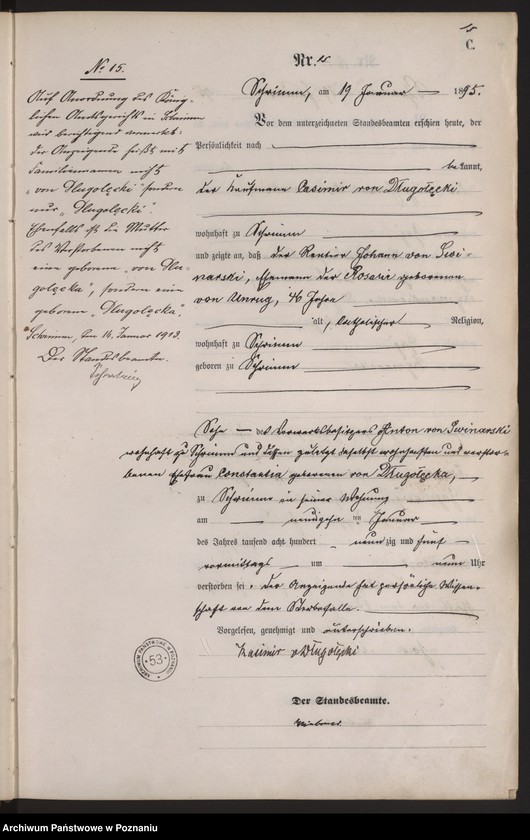 15
C.
Nr. 15
Schrimm, am 19 Januar 1895.
Vor dem unterzeichneten Standesbeamten erschien heute, der
Persönlichkeit nach
bekannt,
der Kaufmann Casimir von Długołęcki
wohnhaft zu Schrimm
und zeigte an, daß der Rentier Johann von Swi-
narski, Ehemann der Rosalie geborenen
von Unrug, 46 Jahre
alt, katholischer Religion,
wohnhaft zu Schrimm
geboren zu Schrimm
Sohn des Vorwerksbesitzers Anton von Swinarski
wohnhaft zu Schrimm und dessen zuletzt daselbst wohnhaften und verstor-
benen Ehefrau Constantia geborenen von Długołęcka,
zu Schrimm in seiner Wohnung
am neunzehn ten Januar
des Jahres tausend acht hundert neunzig und fünf
vormittags um neun Uhr
verstorben sei, der Anzeigende hat persönliche Wissen-
schaft von dem Sterbefalle.
Vorgelesen, genehmigt und unterschrieben.
Kazimir v Długołęcki
Der Standesbeamte.
No 15.
Auf Anordnung des König-
lichen Amtsgerichts in Schrimm
wird berichtigend vermerkt:
der Anzeigende heißt mit
Familiennamen nicht
„von Dlugolęcki" sondern
nur „Dlugolęcki".
Ebenfalls ist die Mutter
des Verstorbenen nicht
eine geborene „von Dlu-
golęcka", sondern eine
geborene „Dlugolęcka."
Schrimm, den 16. Januar 1913.
Der Standesbeamte.
ARCHIWUM PAŃSTWOWE W POZNANIU
53
Archiwum Państwowe w Poznaniu